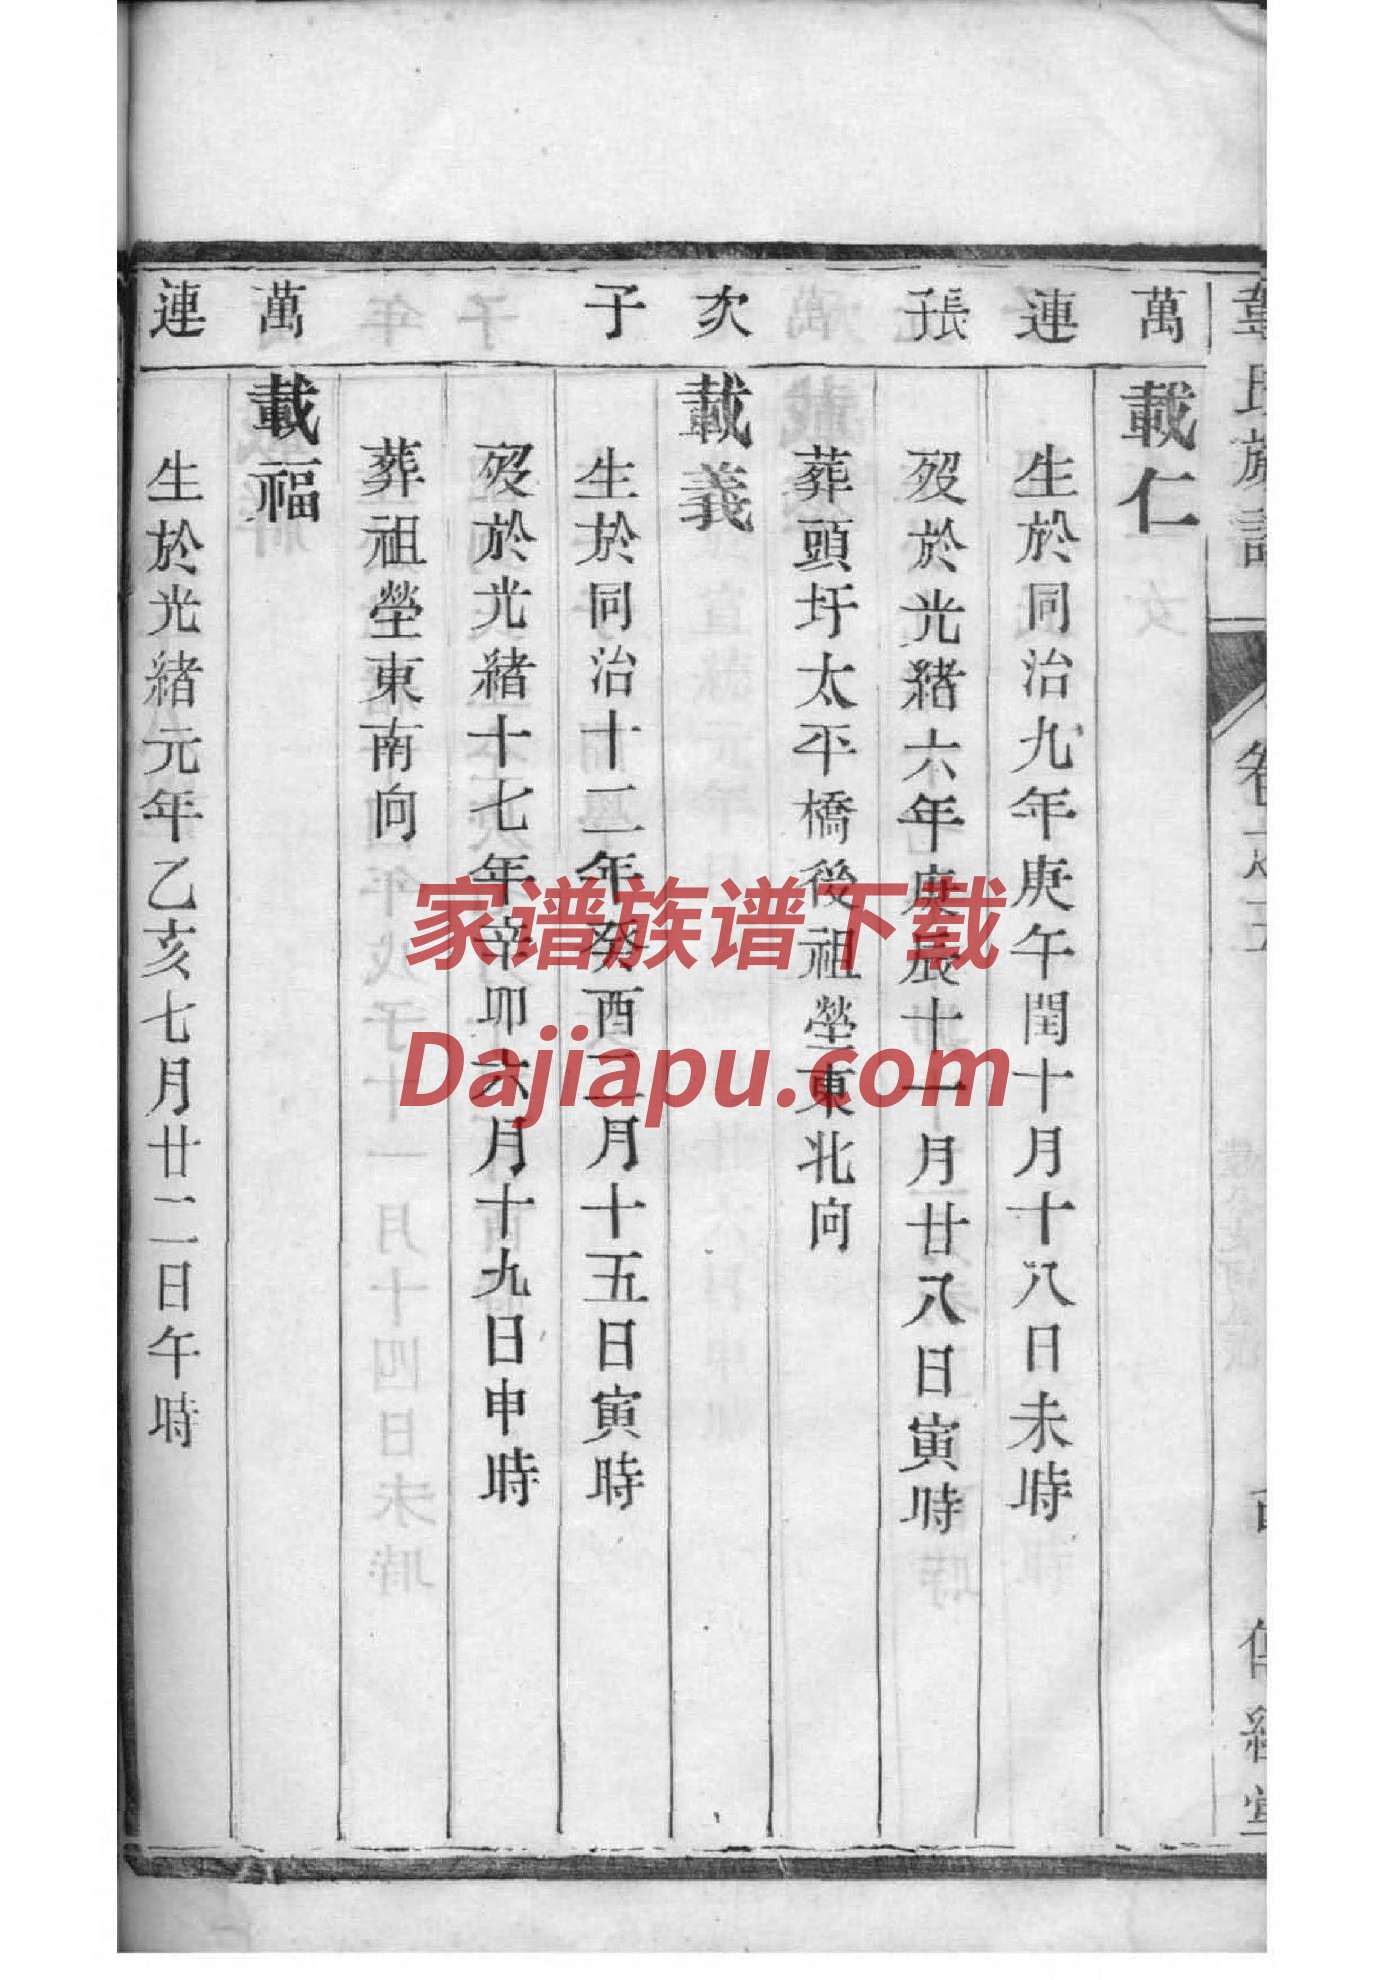 萬 載仁
連 生於同治九年庚午閏十月十八日未時
張 歿於光緒六年庚辰十一月廿八日寅時
葬頭圩太平橋後祖塋東北向
次 載義
子 生於同治十二年癸酉二月十五日寅時
歿於光緒十七年辛卯六月十九日申時
葬祖塋東南向
萬 載福
連 生於光緒元年乙亥七月廿二日午時
家谱族谱下载
Dajiapu.com